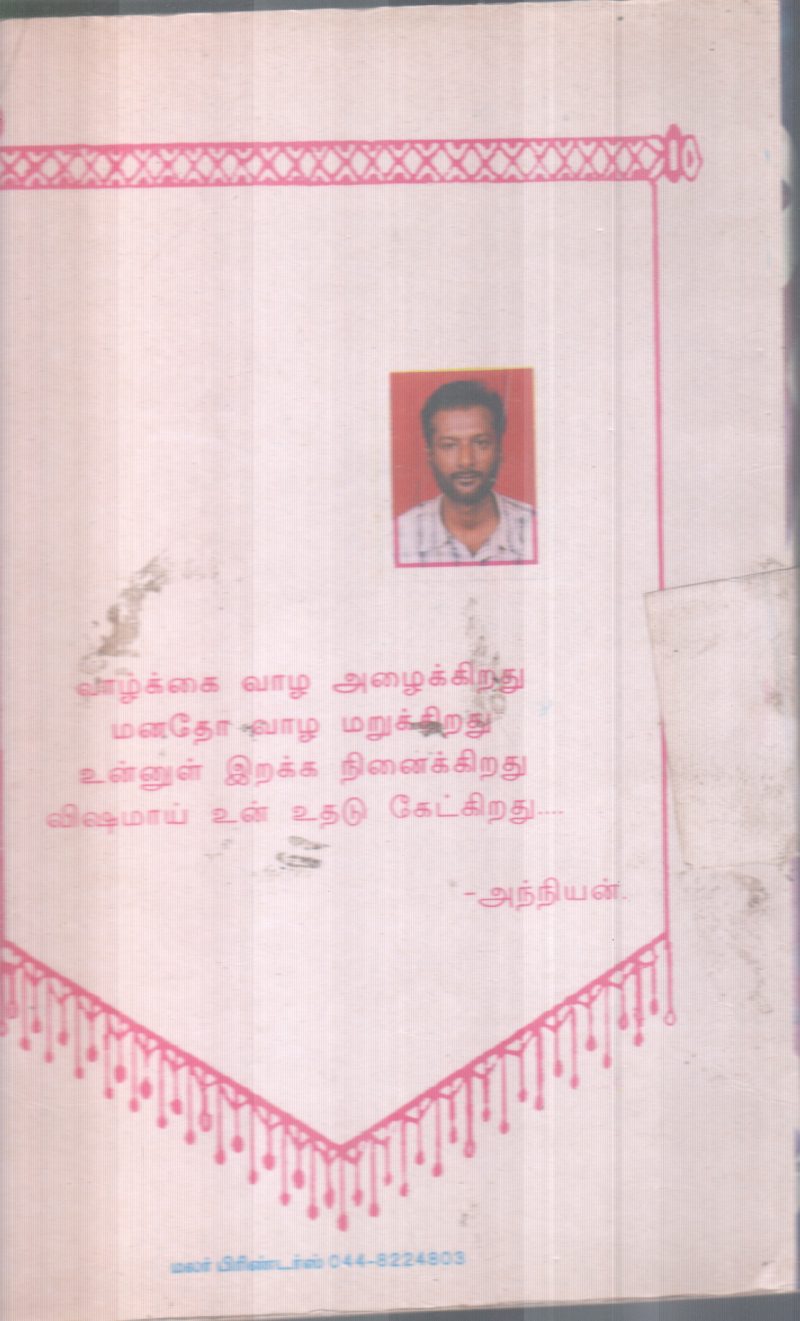 வாழ்க்கை வாழ அழைக்கிறது
மனதோ வாழ மறுக்கிறது
உன்னுள் இறக்க நினைக்கிறது
விஷமாய் உன் உதடு கேட்கிறது....
-அந்நியன்.
மலர் பிரிண்டர்ஸ் 044-8224803